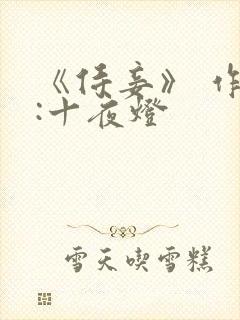 《侍妾》 作
:十夜燈
雪天喫雪糕